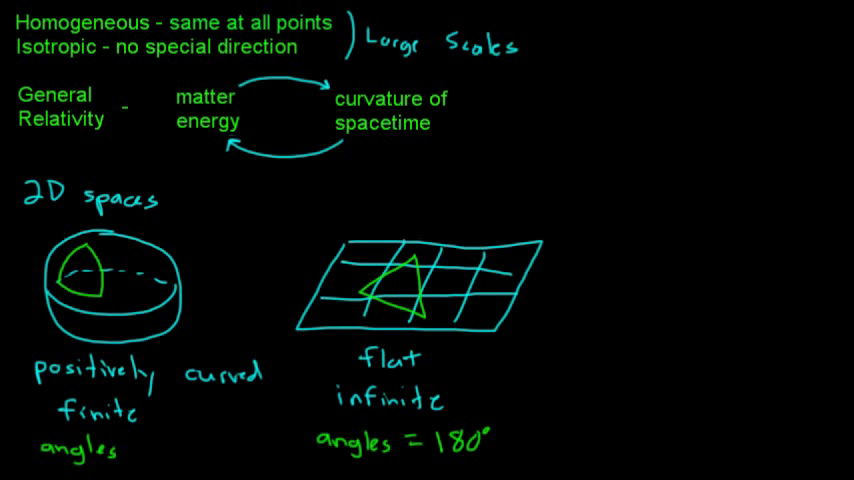 Homogeneous - same at all points
Isotropic - no special direction
Large Scales
General Relativity -
matter energy
curvature of spacetime
2D spaces
positively curved
finite
angles
flat
infinite
angles = 180°